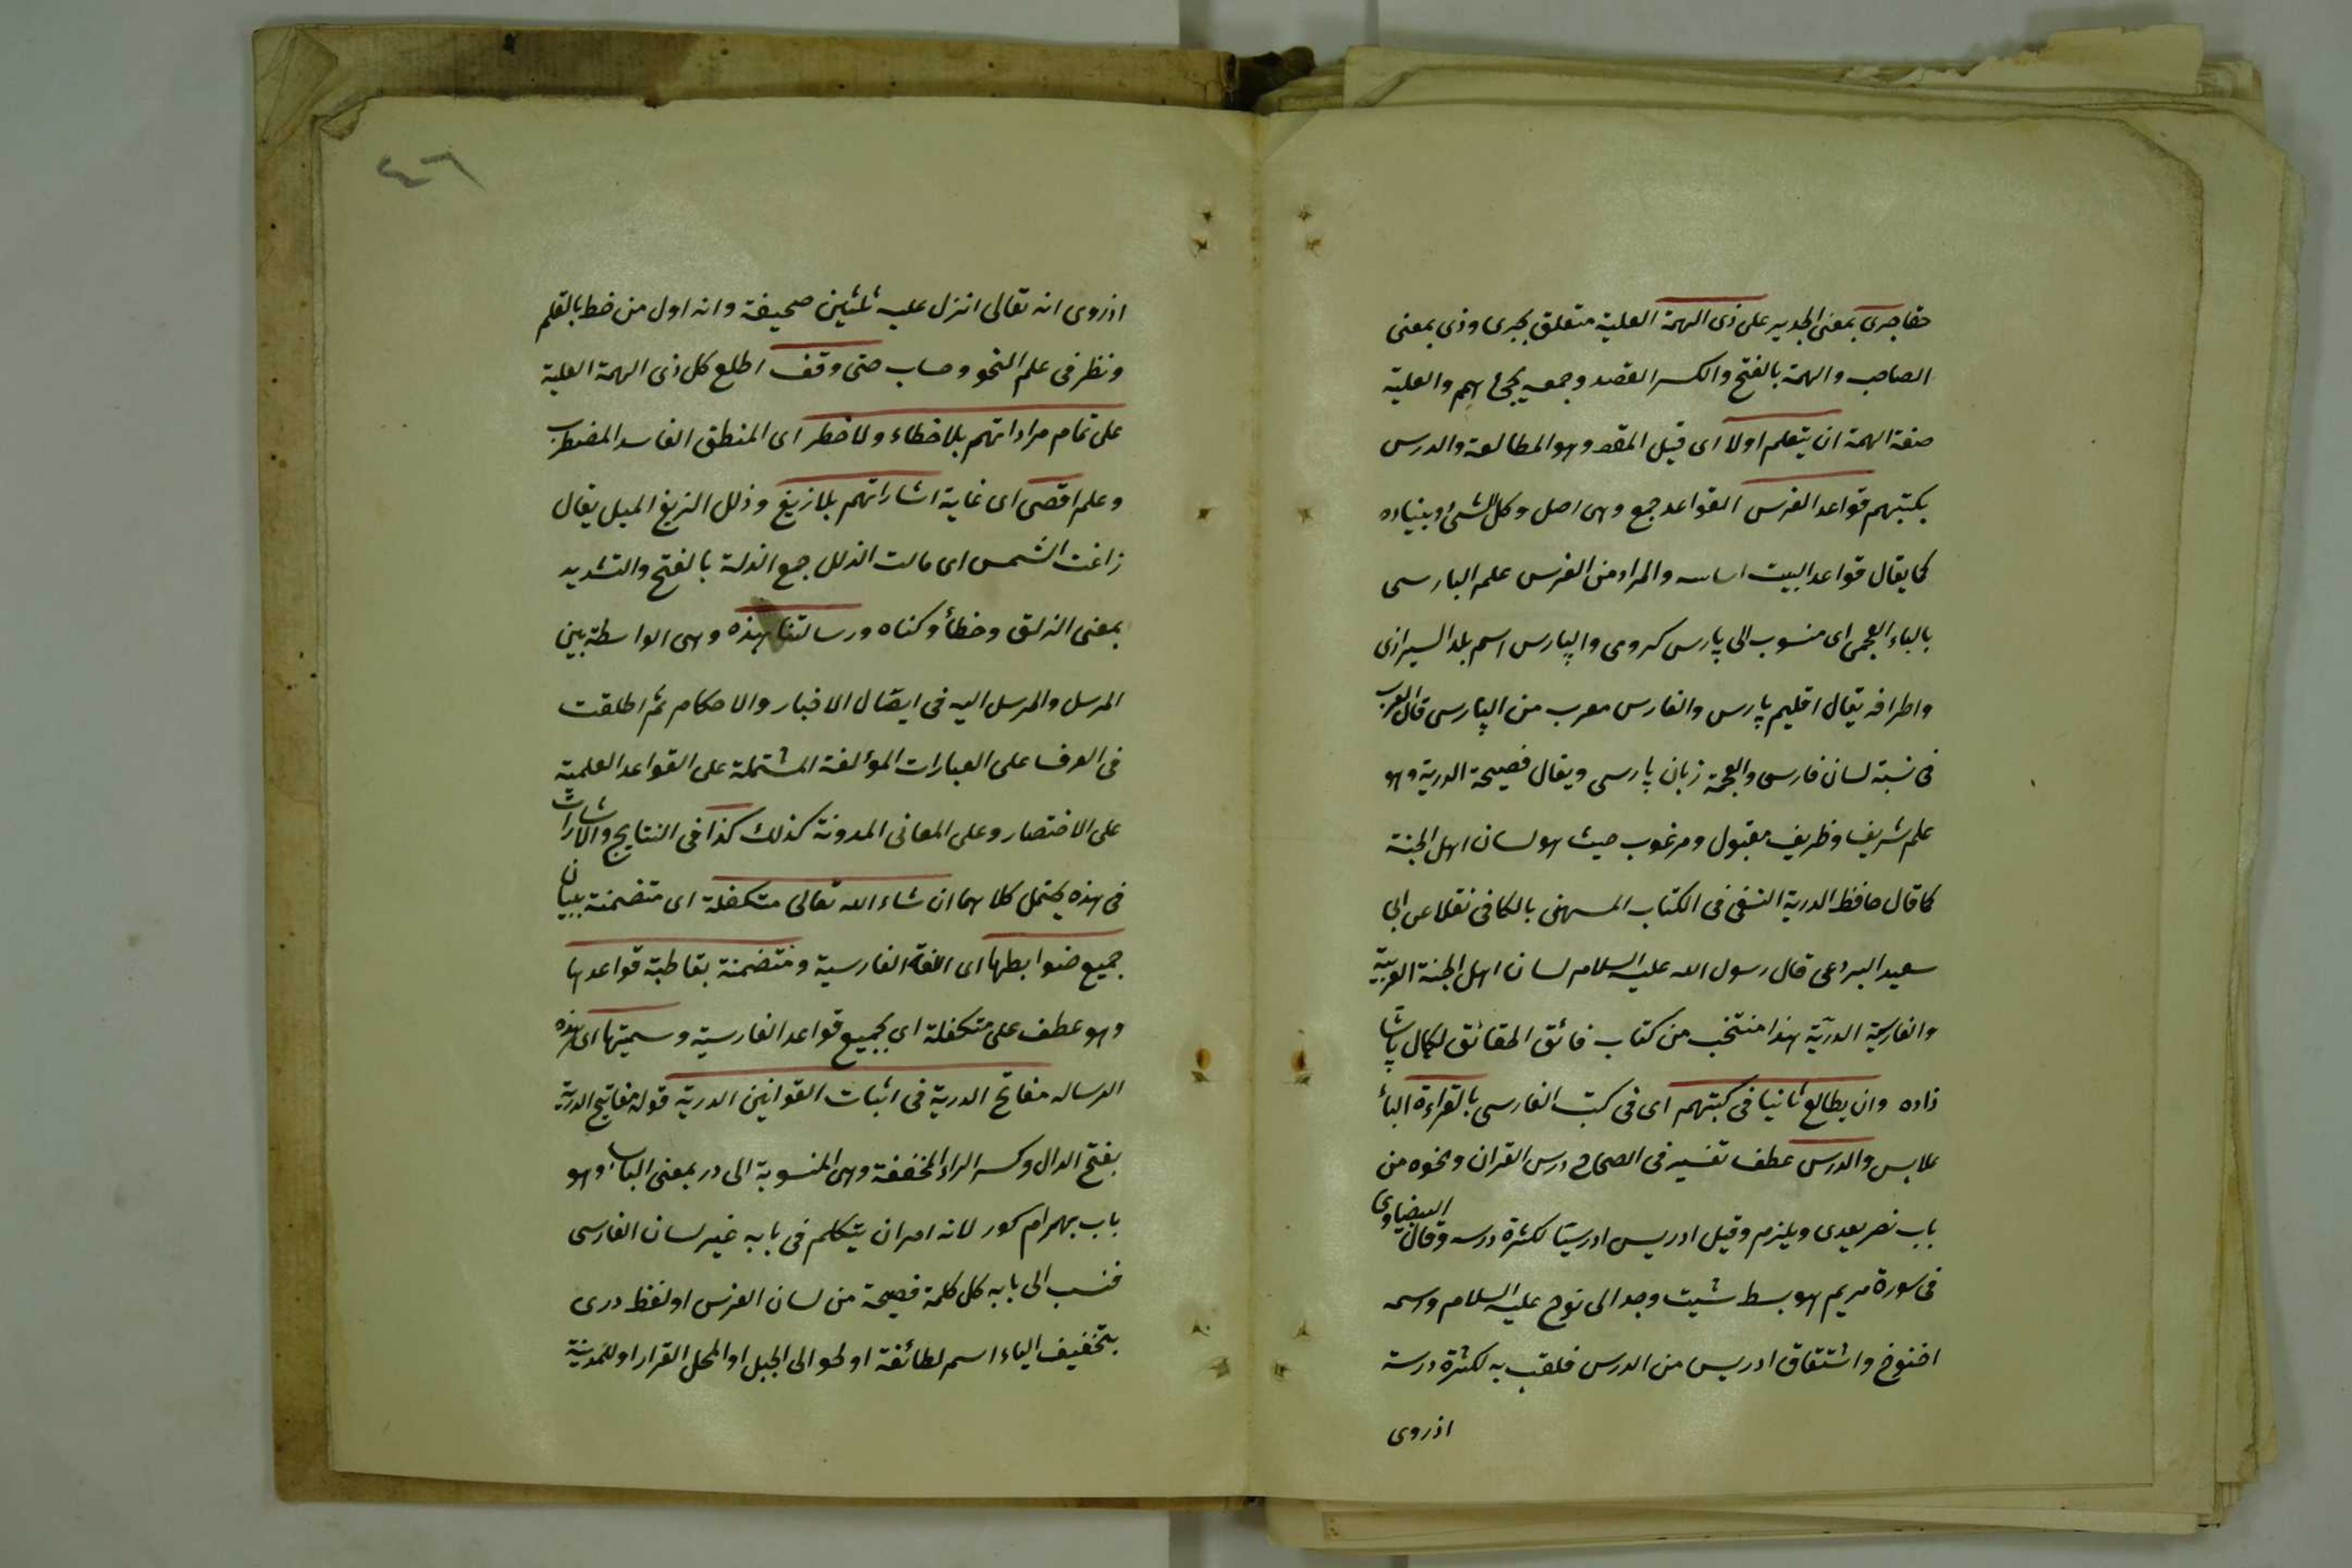 حقا جرى بمعنى الجدير على ذى الهمة العلية متعلق بجرى وذى بمعنى
الصاحب والهمة بالفتح والكسر القصد وجمعه يجئ همم والعلية
صفة الهمة ان يتعلم اولا اى قبل المقصد وهو المطالعة والدرس
بكتبهم قواعد الفرس القواعد جمع وهى اصل وكل الشئ وبنياده
كما يقال قواعد البيت اساسه والمراد من الفرس علم البارسى
بالباء العجمى اى منسوب الى پارس كرومى والپارس اسم بلد الشيرازى
واطرافه يقال اقليم پارس والفارس معرب من الپارسى قال العرب
فى نسبة لسان فارسى والعجمة زبان پارسى ويقال فصيحة الدرية وهو
علم شريف وظريف مقبول ومرغوب حيث هو لسان اهل الجنة
كما قال حافظ الدرية النسفى فى الكتاب المسمى بالكافى نقلا عن ابى
سعيد البردعى قال رسول الله عليه السلام لسان اهل الجنة العربية
والفارسية الدرية هذا منتخب من كتاب فائق الحقائق لكمال پاشا
زاده وان يطالع ثانيا فى كتبهم اى فى كتب الفارسى بالقراءة الباء
ملابس والدرس عطف تفسير فى الصحاح درس القران ونحوه من
باب نصر يعدى ويلزم وقيل ادريس ادريسا لكثرة درسه وقال البيضاوى
فى سورة مريم هو سبط شيت وجد ابى نوح عليه السلام واسمه
اخنوخ واشتقاق ادريس من الدرس فلقب به لكثرة درسه
اذ روى
٤٦
اذ روى انه تعالى انزل عليه ثلثين صحيفة وانه اول من خط بالقلم
ونظر فى علم النحو وحساب حتى وقف اطلع كل ذى الهمة العلية
على تمام مراداتهم بلا خطاء ولا خطر اى المنطق الفاسد المضطرب
وعلم اقصى اى غاية اشاراتهم بلا زيغ وذلل الزيغ الميل يقال
زاغت الشمس اى مالت الذلل جمع الذلة بالفتح والتشديد
بمعنى الزلق وخطأ وكناه ورسالتنا هذه وهى الواسطة بين
المرسل والمرسل اليه فى ايصال الاخبار والاحكام ثم اطلقت
فى العرف على العبارات المؤلفة المشتملة على القواعد العلمية
على الاختصار وعلى المعانى المدونة كذلك كذا فى النتايج والاشارات
فى هذه يحتمل كلاهما ان شاء الله تعالى متكفلة اى متضمنة ببيان
جميع ضوابطها اى اللغة الفارسية ومتضمنة بقاطبة قواعدها
وهو عطف على متكفلة اى بجميع قواعد الفارسية وسميتها اى هذه
الرساله مفاتح الدرية فى اثبات القوانين الدرية قوله مفاتيح الدرية
بفتح الدال وكسر الراء المخففة وهى المنسوبة الى در بمعنى الباب وهو
باب بهرام كور لانه امر ان يتكلم فى بابه غير لسان الفارسى
فنسب الى بابه كل كلمة فصيحة من لسان الفرس او لفظ درى
بتخفيف الياء اسم لطائفة او لحوالى الجبل او المحل القرار او للمدينة